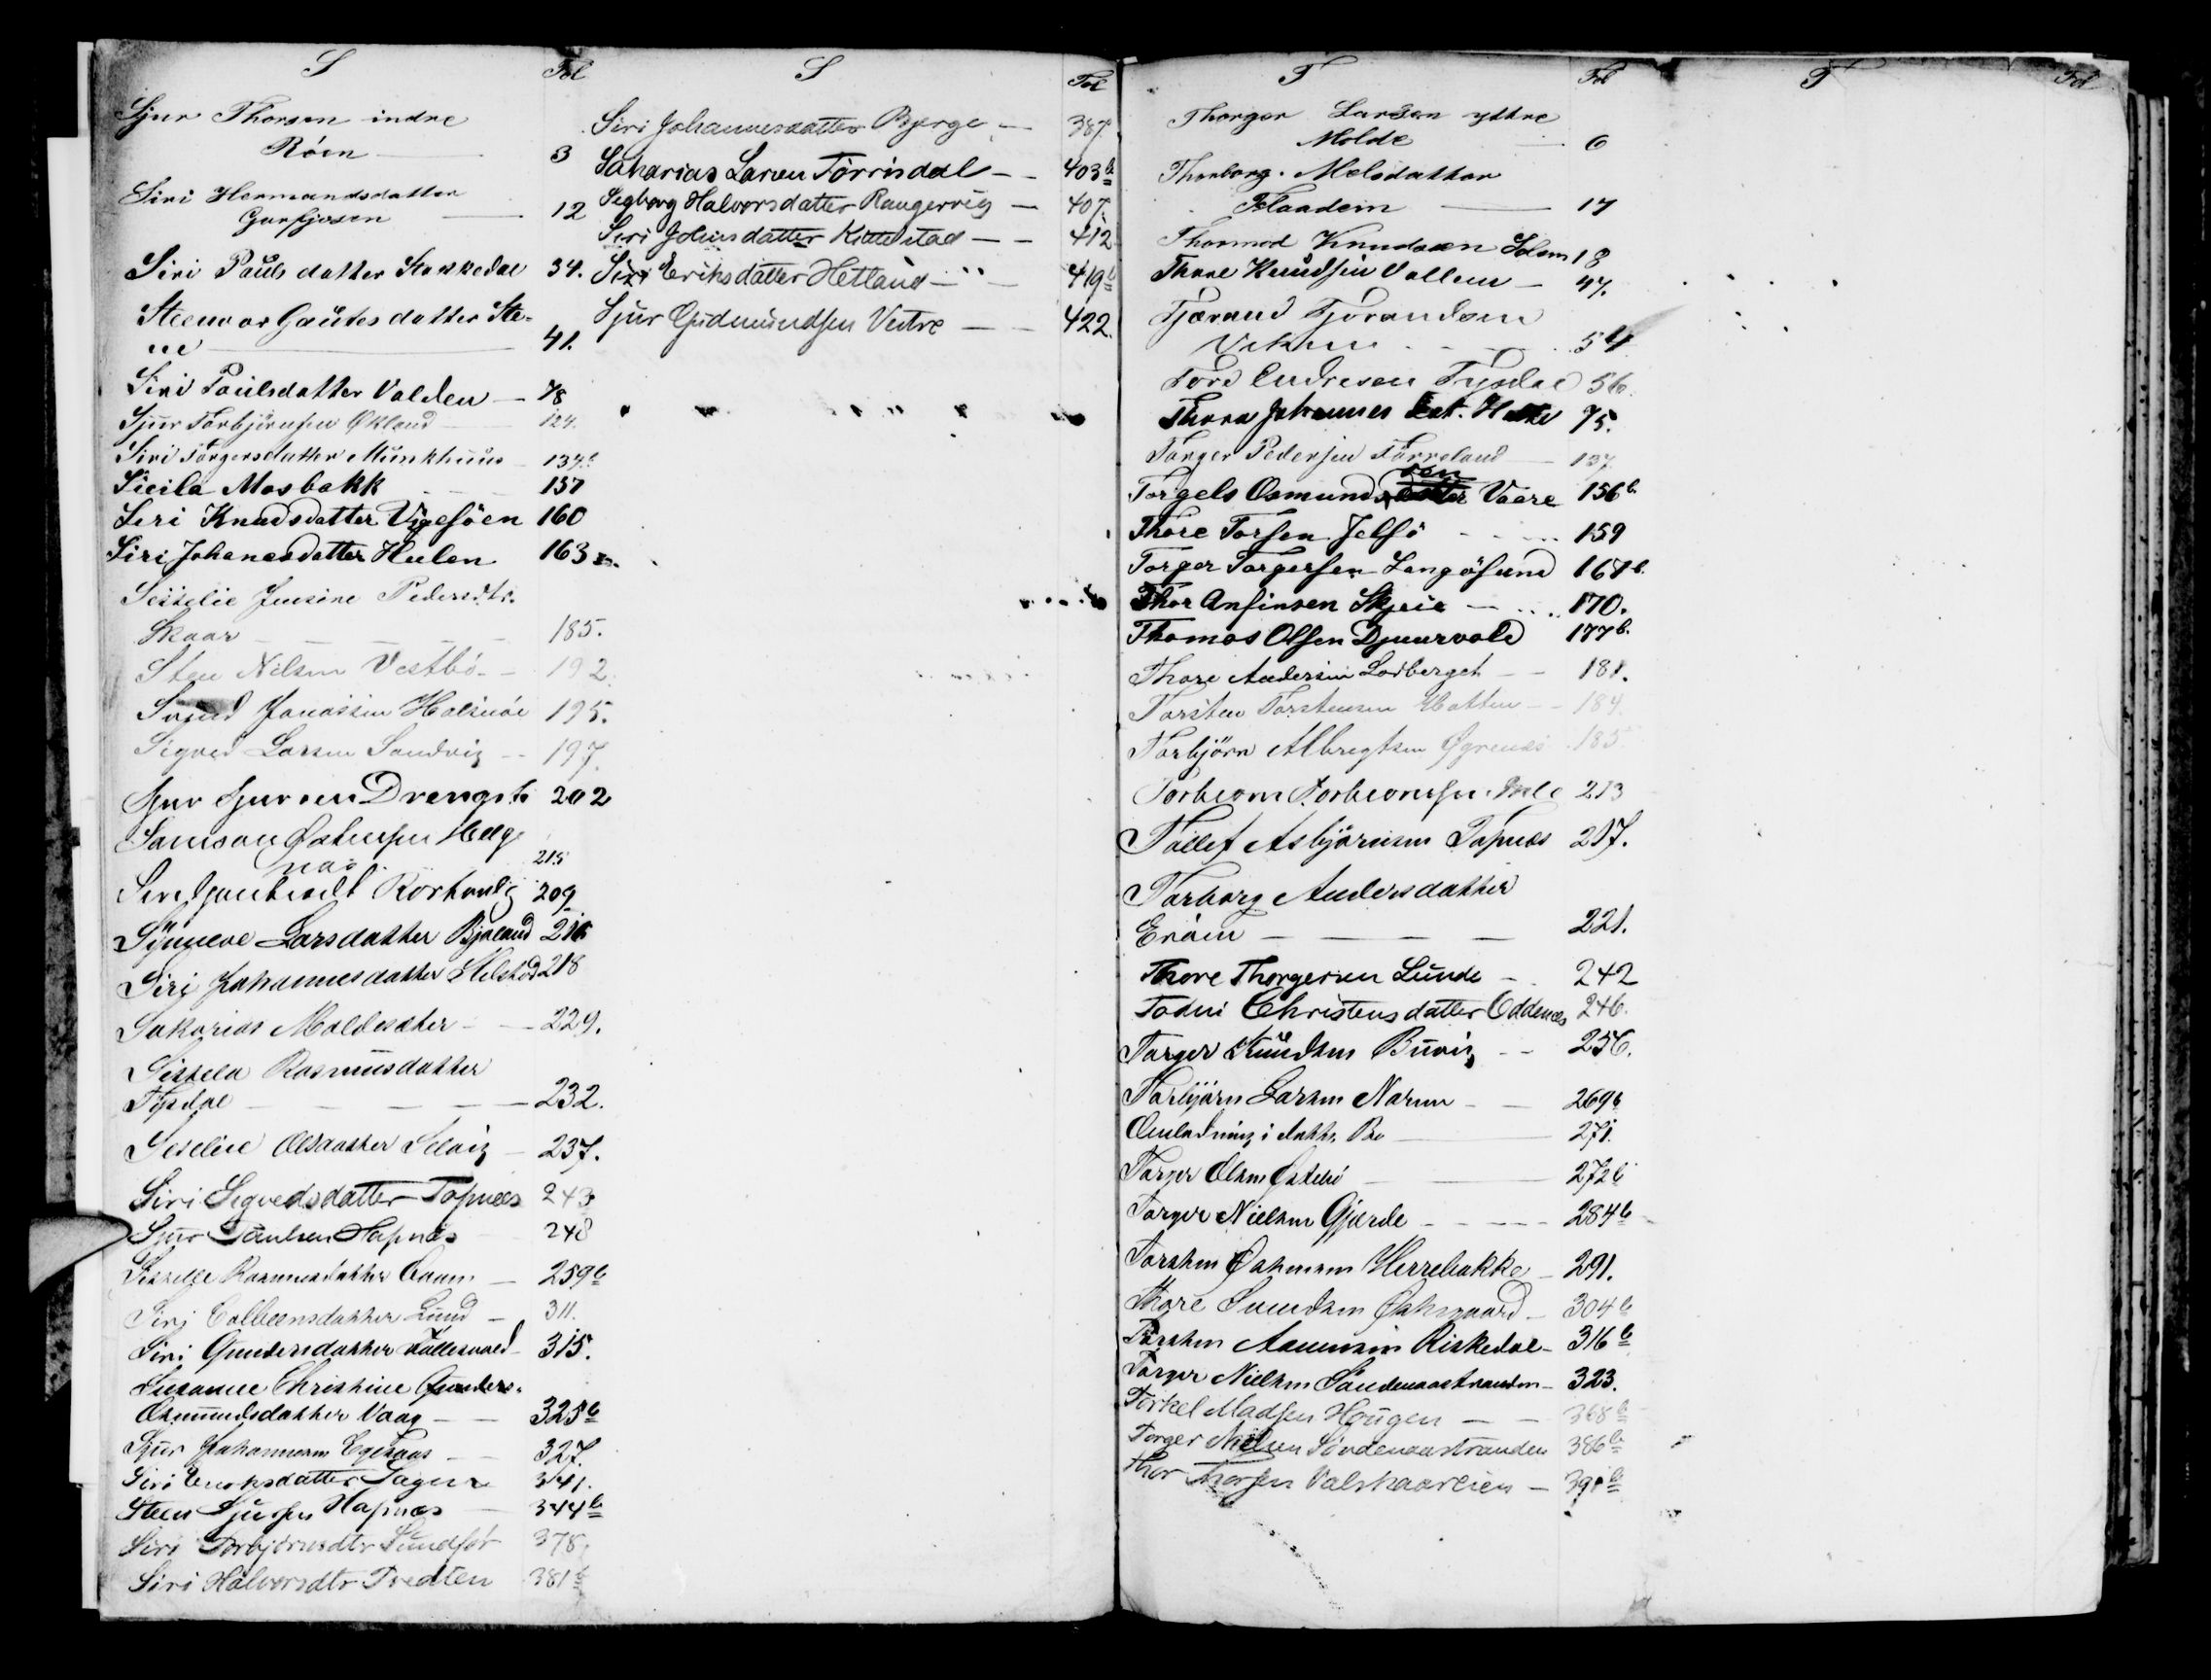 S Fol
Sjur Thorsen indre
Röen 3
Siri Hermandsdatter
12
Siri Pauls datter Starkedal 34.
Steenvor Gautes datter Ste-
ne 41.
Siri Paulsdatter Valden 78
Sjur Torbjörnsen Økland 124.
Siri Torgersdatter Munkhuus 134b
Sicila Mosbakk 157
Seri Knudsdatter Vigesöen 160
Siri Johanesdatter Heelen 163
Sisselie Jensine Pedersdtr.
Skaar 185.
Sten Nilsen Vestbö 192
Svend Jonassen Halsnöe 195.
Sigved Larsen Sandvig 197.
Sjur Sjursen 202
Samson Østensen
215
209
Synneve Larsdatter Bjaland 216
Siri Johannesdatter 218
Sakarias Moldesæter 229.
Sissela Rasmusdatter
Tysdal 232.
Siselie Olsdatter Selvig 237.
Siri Segvedsdatter Tofnæs 243
Sjur Paulsen Hapnæs 248
Sisselge Rasmusdatter 259b
Siri Colbeensdatter Lund 311.
Siri Gundersdatter 315.
Susanne Christine Gunders-
Osmundsdatter Vaag 325b
Sjur Johannesen Egesaas 327.
Siri datter 341.
Steen Sjursen Hapnæs 344b
Siri Torbjörnsdtr Sundför 378
Siri Halvorsdtr Tvedten 381b
S Fol
Siri Johannesdatter Bjerge 387
Saharias Larsen Törrisdal 403b
Segborg Halvorsdatter Raugervig 407.
Siri Johnsdatter Kittelstad 412
Siri Eriksdatter Hetland 419b
Sjur Gudmundsen Vestre 422.
T Fol
Thorger Larsen yttre
Molde 6
Thorborg Melsdatter
Flaadein 17
Thormod Knudsen Solem 18
Thore Knudsen Vallem 47.
Tjærand Tjerandsen
54
Tore Endresen Tysdal 56.
Thora Johannes Dat. 75.
Torger Pedersen Törreland 137
Torgels Osmundssen Vaare 156b.
Thore Torsen Jelsö 159
Torger Torgersen Langösund 167b.
Thor Anfinsen Skjeie 170.
Thomas Olsen Djuurvold 177b.
Thore Andersen Lodberget 181.
Torsten Torstensen Hatten 184.
Torbjörn Albregtsen Øgrenæs 185
Torbiorn Torbiornsen 213
Tollef Asbjörnsen Tofnæs 217.
Torborg Andersdatter
Eröen 221.
Thore Thorgersen Lunde 242
Todni Christens datter Oddenæs 246.
Torger Knudsen Buvig 256.
Torbjörn Larsen Narum 269b
271.
Torger Olsen Østebö 272b
Torger Nielsen Gjærde 284b
Torsten Herrebakke 291.
Thore Svendsen 304b
Torsten Aamunsen Riskedal 316b
Torger Nielsen Söndenaastranden 323.
Torkel Madsen Hougen 368b
Torger Nielsen Söndenaastranden 386b
Thor Thorsen Valskaarlien 391b
T Fol